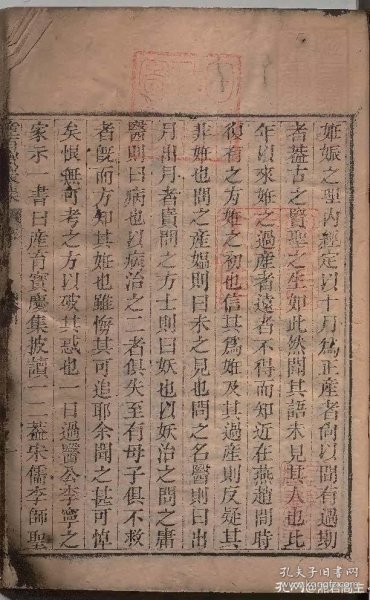 姙娠之理内經定以十月爲正産者間以間有過期
者葢古之賢聖之生如此然聞其語未見其人也比
年以來姙之過産者遠者不得而知近在燕趙間時
復有之方姙之初也信其爲姙及其過産則反疑其
非姙也問之産媪則曰未之見也問之名醫則曰出
月出月者責問之方士則曰妖也以妖治之問之庸
醫則曰病也以病治之二者俱失至有母子俱不救
者旣而方知其姙也雖悔其可追耶余聞之甚可悼
矣恨無可考之方以破其惑也一日過醫公李寧之
家示一書曰産育寶慶集披讀一二葢宋儒李師聖
孔夫子旧书网